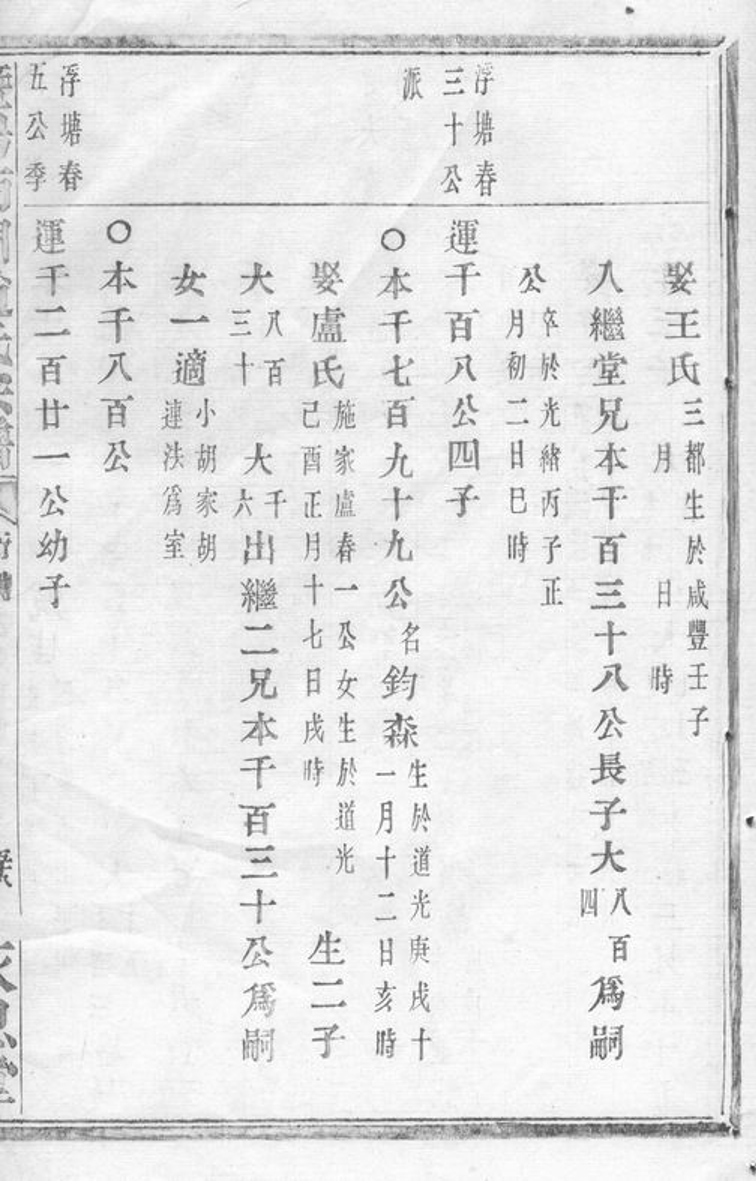 浮塘春
三十公
派
娶王氏三都生於咸豐壬子
月 日 時
入繼堂兄本千百三十八公長子大八百四爲嗣
公卒於光緒丙子正
月初二日巳時
運千百八公四子
○本千七百九十九公名鈞森生於道光庚戌十
一月十二日亥時
娶盧氏施家盧春一公女生於道光
己酉正月十七日戌時 生二子
大八百三十 大千六出繼二兄本千百三十公爲嗣
女一適小胡家胡
連法爲室
浮塘春
五公季
○本千八百公
運千二百廿一公幼子